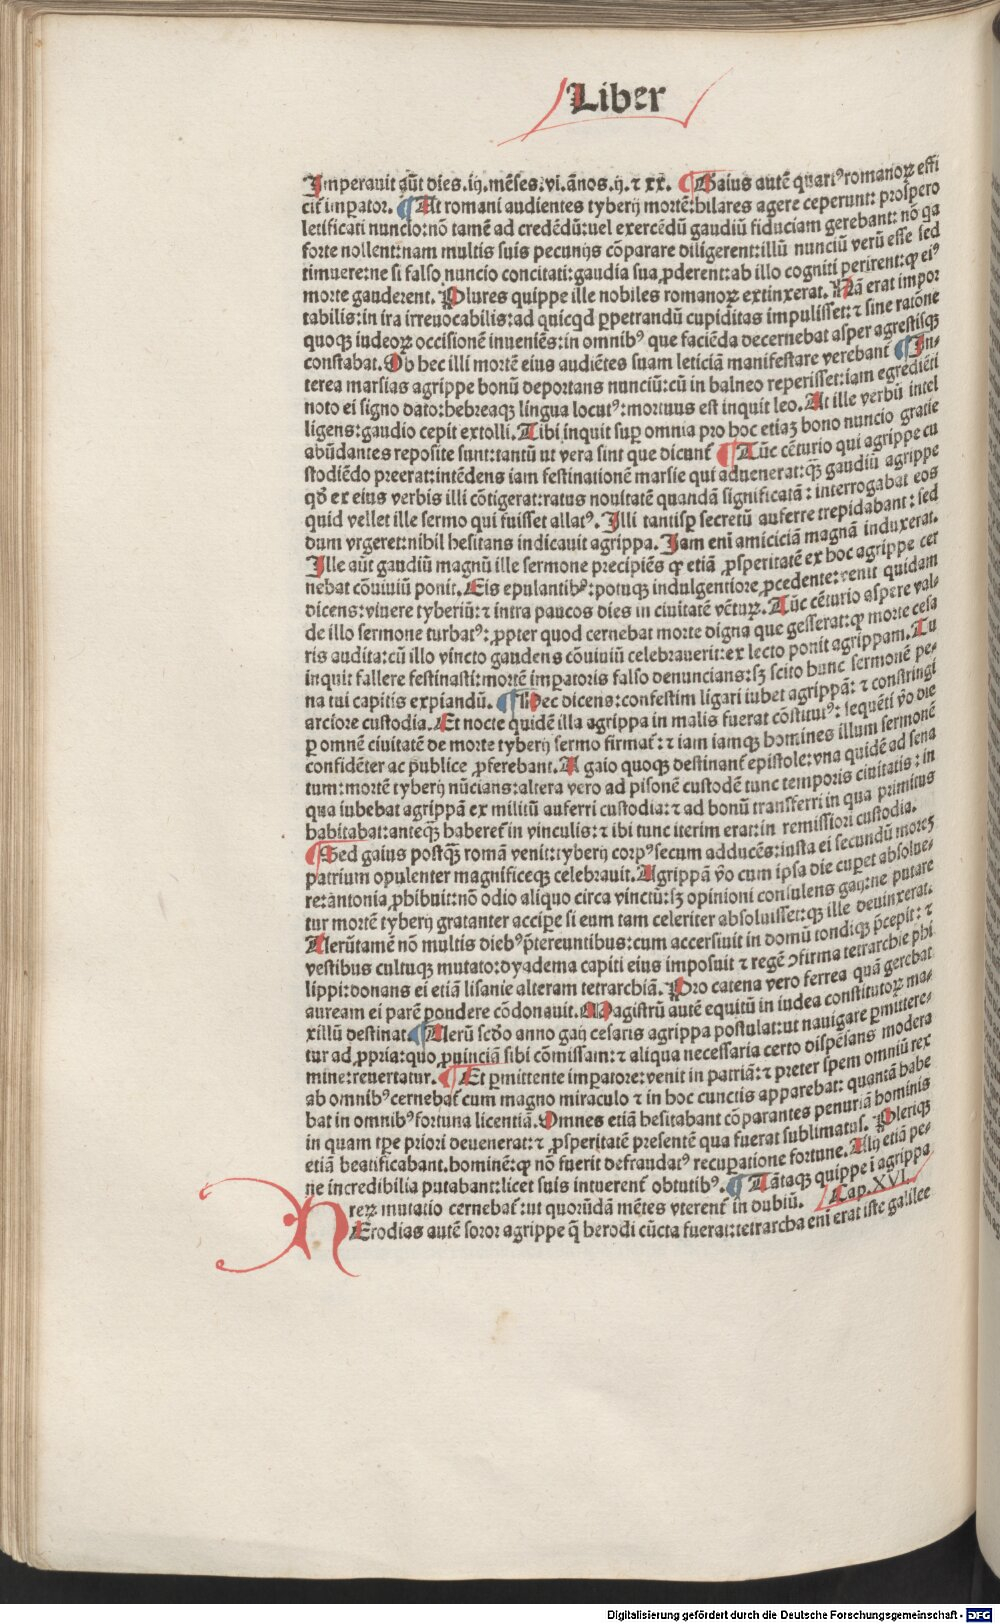 Liber
Imperauit aūt dies.iij.mēses.vi.ānos.ij.⁊ xx. ¶ Gaius autē quartꝰ romanoꝝ effi
cit̄ imꝑator. ¶ At romani audientes tyberij mortē:hilares agere ceperunt: prospero
letificati nuncio:nō tamē ad credēdū:uel exercēdū gaudiū fiduciam gerebant: nō ꝗa
forte nollent:nam multis suis pecunijs cōparare diligerent:illū nunciū verū esse sed
timuere:ne si falso nuncio concitati:gaudia sua ꝓderent:ab illo cogniti perirent:ꝙ eiꝰ
morte gauderent. Plures quippe ille nobiles romanoꝝ extinxerat. Nā erat impor
tabilis:in ira irreuocabilis:ad quicqd ꝑpetrandū cupiditas impulisset:⁊ sine ratōne
quoqꝫ iudeoꝝ occisionē inueniēs:in omnibꝰ que faciēda decernebat asper agrestisqꝫ
constabat. Ob hec illi mortē eius audiētes suam leticiā manifestare verebant̄ ¶ In-
terea marsias agrippe bonū deportans nunciū:cū in balneo reperisset:iam egrediēti
noto ei signo dato:hebreaqꝫ lingua locutꝰ:mortuus est inquit leo. At ille verbū intel
ligens:gaudio cepit extolli. Tibi inquit suꝑ omnia pro hoc etiaꝫ bono nuncio gratie
abūdantes reposite sunt:tantū ut vera sint que dicunt̄ ¶ Tūc cēturio qui agrippe cu
stodiēdo preerat:intēdens iam festinationē marsie qui aduenerat:qꝫ gaudiū agrippe
qđ ex eius verbis illi cōtigerat:ratus nouitatē quandā significatā: interrogabat eos
quid vellet ille sermo qui fuisset allatꝰ. Illi tantisꝑ secretū auferre trepidabant: sed
dum vrgeret:nihil hesitans indicauit agrippa. Iam eni amiciciā magnā induxerat.
Ille aūt gaudiū magnū ille sermone precipiēs ꝙ etiā ꝓsperitatē ex hoc agrippe cer
nebat cōuiuiū ponit. Eis epulantibꝰ:potuqꝫ indulgentiore ꝓcedente:venit quidam
dicens:viuere tyberiū:⁊ intra paucos dies in ciuitatē vētuꝝ. Tūc cēturio aspere val-
de illo sermone turbatꝰ:ꝓpter quod cernebat morte digna que gesserat:ꝙ morte cesa
ris audita:cū illo vincto gaudens cōuiuiū celebrauerit:ex lecto ponit agrippam. Tu
inquit fallere festinasti:mortē imꝑatoris falso denuncians:sꝫ scito hunc sermonē pe-
na tui capitis expiandū. ¶ Hec dicens:confestim ligari iubet agrippā: ⁊ constringi
arciore custodia. Et nocte quidē illa agrippa in malis fuerat cōstitutꝰ: sequēti v̄o die
ꝑ omnē ciuitatē de morte tyberij sermo firmat̄: ⁊ iam iamqꝫ homines illum sermonē
confidēter ac publice ꝓferebant. A gaio quoqꝫ destinant̄ epistole:vna quidē ad sena
tum:mortē tyberij nūcians:altera vero ad pisonē custodē tunc temporis ciuitatis: in
qua iubebat agrippā ex militū auferri custodia:⁊ ad bonū transferri in qua primitus
habitabat:anteqꝫ haberet̄ in vinculis:⁊ ibi tunc iterim erat:in remissiori custodia.
¶ Sed gaius postqꝫ romā venit:tyberij corpꝰ secum adducēs:iusta ei secundū moreꝫ
patrium opulenter magnificeqꝫ celebrauit. Agrippā v̄o cum ipsa die cuꝑet absolue-
re:antonia ꝓhibuit:nō odio aliquo circa vinctū:sꝫ opinioni consulens gaij:ne putare
tur mortē tyberij gratanter acciꝑe si eum tam celeriter absoluisset:qꝫ ille deuinxerat.
Verūtamē nō multis diebꝰ p̄tereuntibus:cum accersiuit in domū tondiqꝫ p̄cepit: ⁊
vestibus cultuqꝫ mutato:dyadema capiti eius imposuit ⁊ regē ↄfirma tetrarchie phi
lippi:donans ei etiā lisanie alteram tetrarchiā. Pro catena vero ferrea quā gerebat
auream ei parē pondere cōdonauit. Magistrū autē equitū in iudea constitutoꝝ ma-
xillū destinat. ¶ Verū scđo anno gaij cesaris agrippa postulat:ut nauigare ꝑmittere-
tur ad ꝓpria:quo ꝓuinciā sibi cōmissam:⁊ aliqua necessaria certo dispēsans modera
mine:reuertatur. ¶ Et ꝑmittente imꝑatore:venit in patriā:⁊ preter spem omniū rex
ab omnibꝰ cernebat̄ cum magno miraculo ⁊ in hoc cunctis apparebat: quantā habe
bat in omnibꝰ fortuna licentiā. Omnes etiā hesitabant cōparantes penuriā hominis
in quam tꝑe priori deuenerat:⁊ ꝓsperitatē presentē qua fuerat sublimatus. Plerique
etiā beatificabant.hominē:ꝙ nō fuerit defraudatꝰ recuꝑatione fortune. Alij etiā pe-
ne incredibilia putabant:licet suis intuerent̄ obtutibꝰ. ¶ Tātaqꝫ quippe ī agrippa
reꝝ mutatio cernebat̄:ut quorūdā mētes vterent̄ in dubiū. Cap.XVI.
HErodias autē soror agrippe q̄ herodi cūcta fuerat:tetrarcha eni erat iste galilee
Digitalisierung gefördert durch die Deutsche Forschungsgemeinschaft - DFG